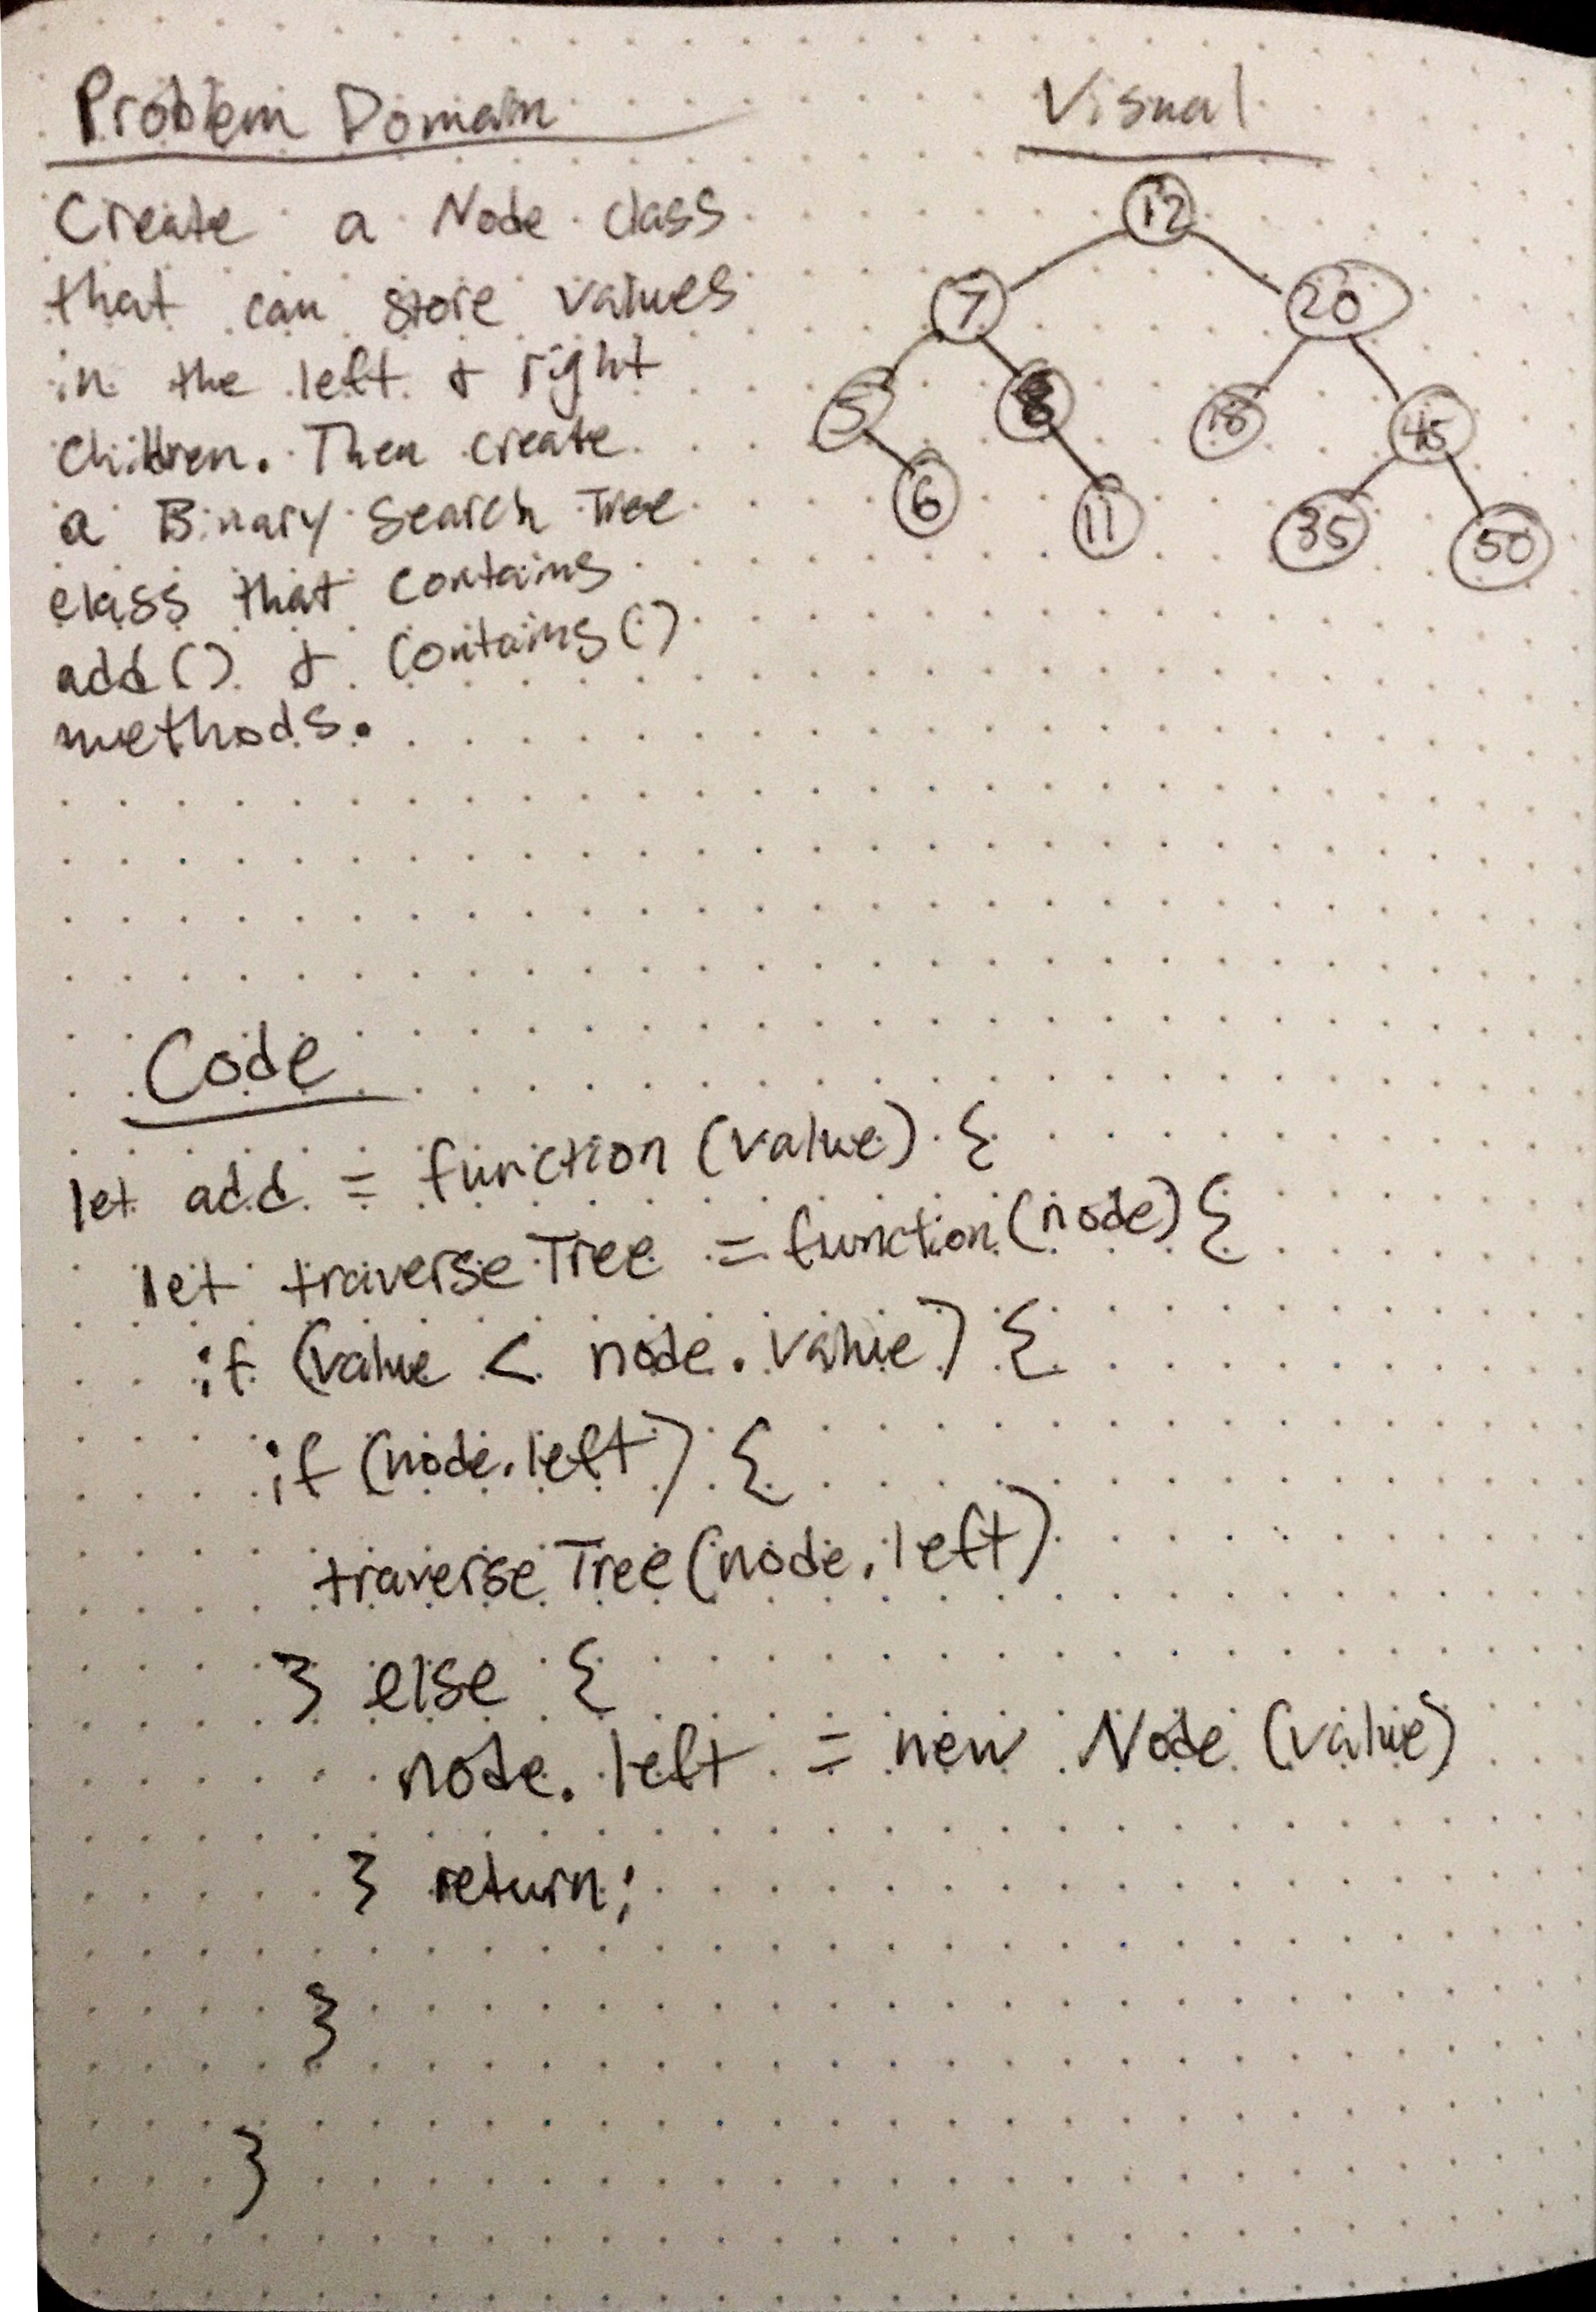 Problem Domain
Create a Node class
that can store values
in the left & right
children. Then create
a Binary Search Tree
class that contains
add() & contains()
methods.
Visual
12
7 20
5 8 18 45
6 11 35 50
Code
let add = function (value) {
let traverseTree = function(node) {
if (value < node.value) {
if (node.left) {
traverseTree(node.left)
} else {
node.left = new Node (value)
} return;
}
}